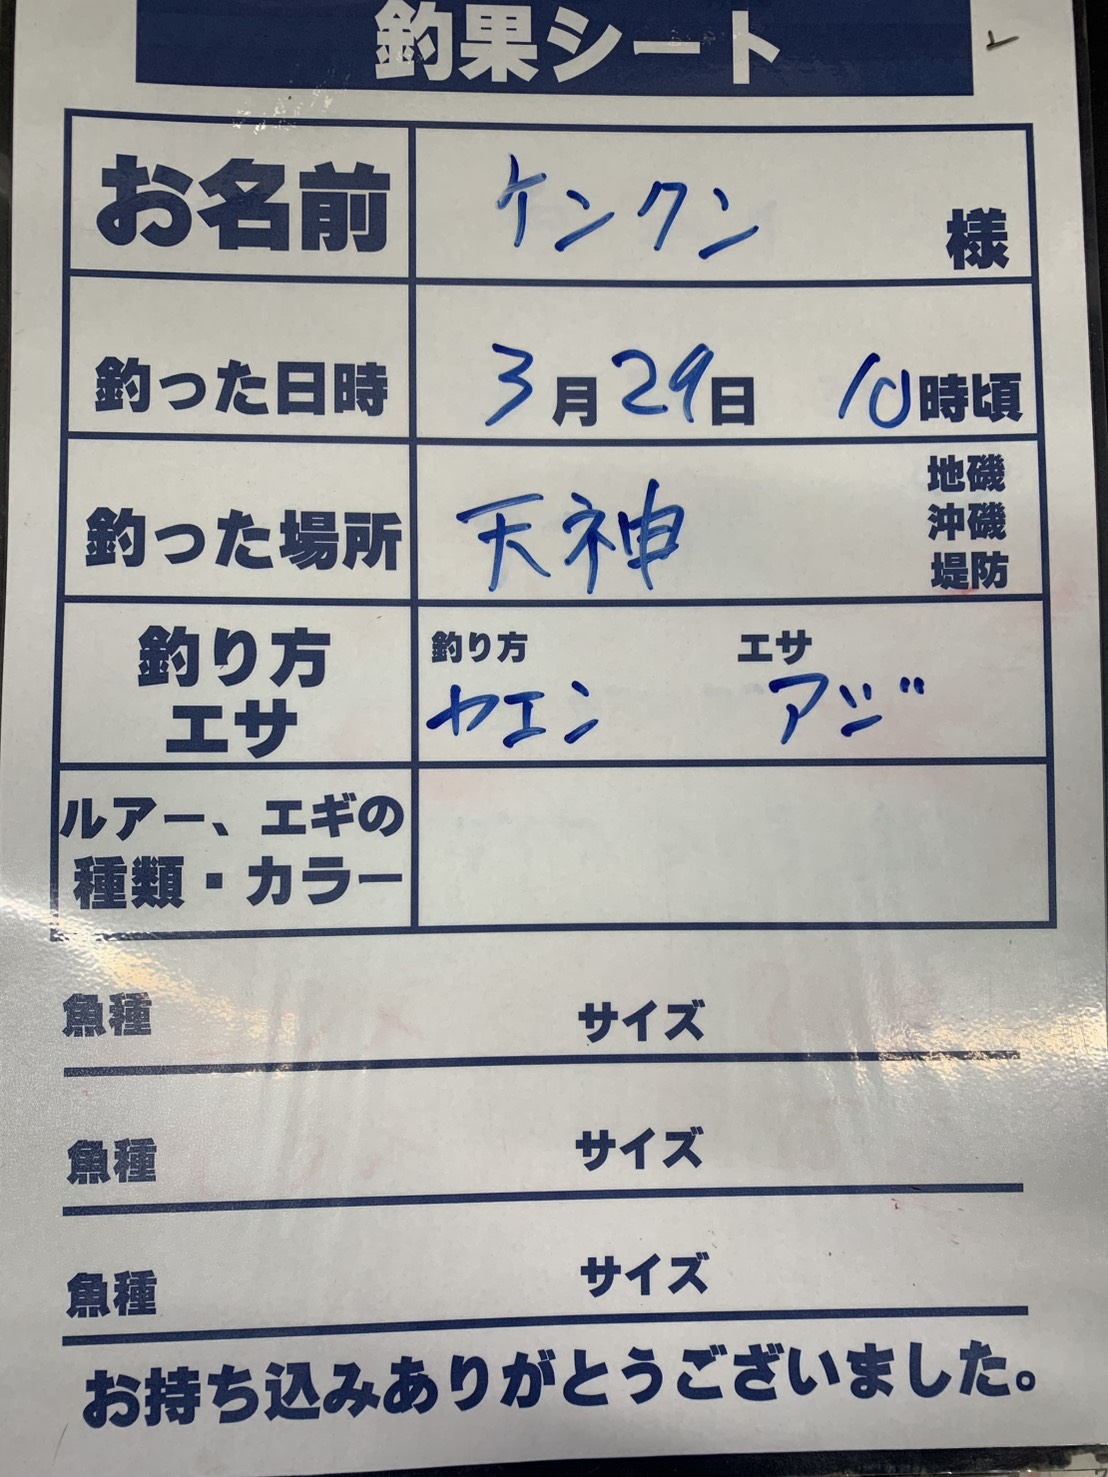 釣果シート
お名前 ケンクン 様
釣った日時 3月29日 10時頃
釣った場所 天神 地磯
沖磯
堤防
釣り方 釣り方 エサ
エサ ヤエン アジ
ルアー、エギの
種類・カラー
魚種 サイズ
魚種 サイズ
魚種 サイズ
お持ち込みありがとうございました。